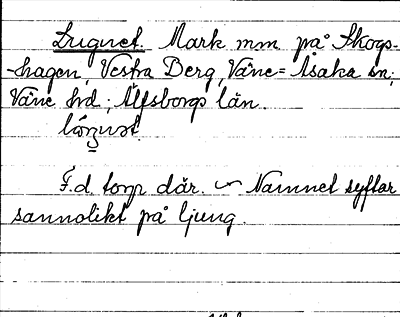 Lugnet. Mark mm på Skogs-
-hagen, Vestra Berg, Väne-Åsaka sn;
Väne hd; Älfsborgs län.
F.d. torp där. ~ Namnet syftar
sannolikt på ljung.